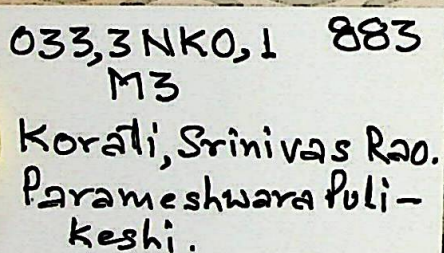 033,3NKO,1 883
M3
Korati, Srinivas Rao.
Parameshwara Puli-
keshi.